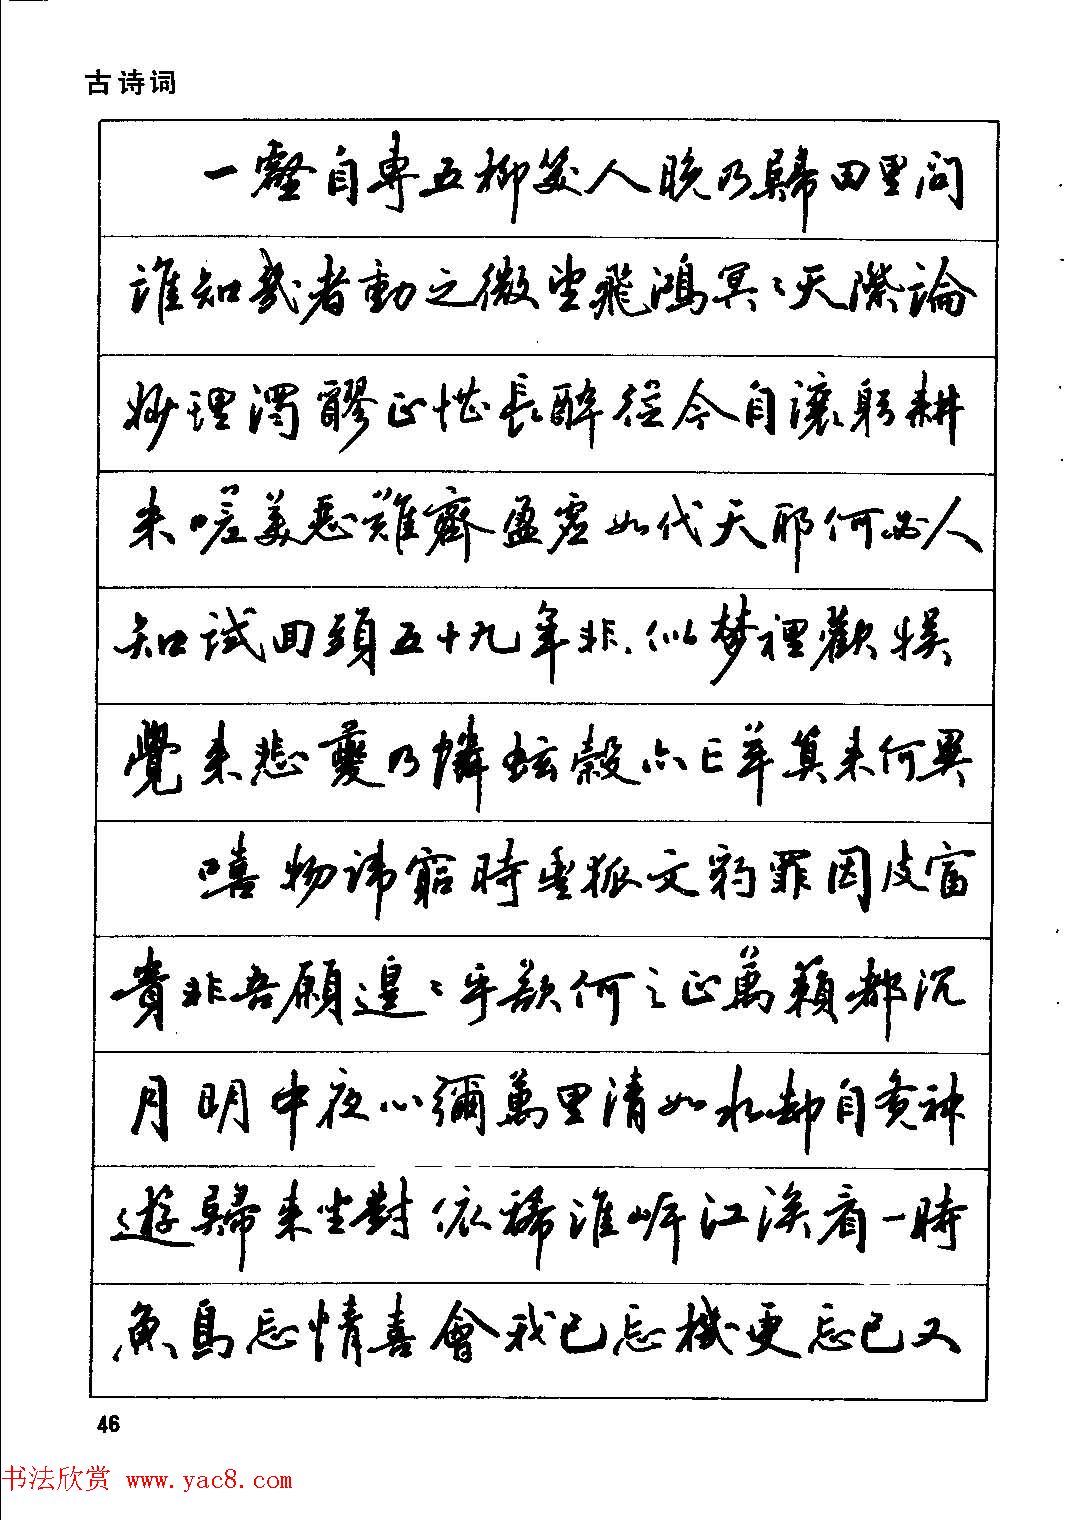 古诗词
一壑自專五柳笑人晚乃歸田里問
誰知幾者動之微望飛鴻冥〻天際論
妙理濁醪正堪長醉從今自釀躬耕
米嗟美惡難齊盈虛如代天耶何必人
知試回頭五十九年非似夢裡歡娛
覺來悲夔乃憐蚿穀亦亡羊算來何異
嘻物諱窮時豐狐文豹罪因皮富
貴非吾願遑〻乎欲何之正萬籟都沉
月明中夜心彌萬里清如水却自覺神
遊歸來坐對依稀淮岸江涘看一時
魚鳥忘情喜會我已忘機更忘己又
46
书法欣赏 www.yac8.com